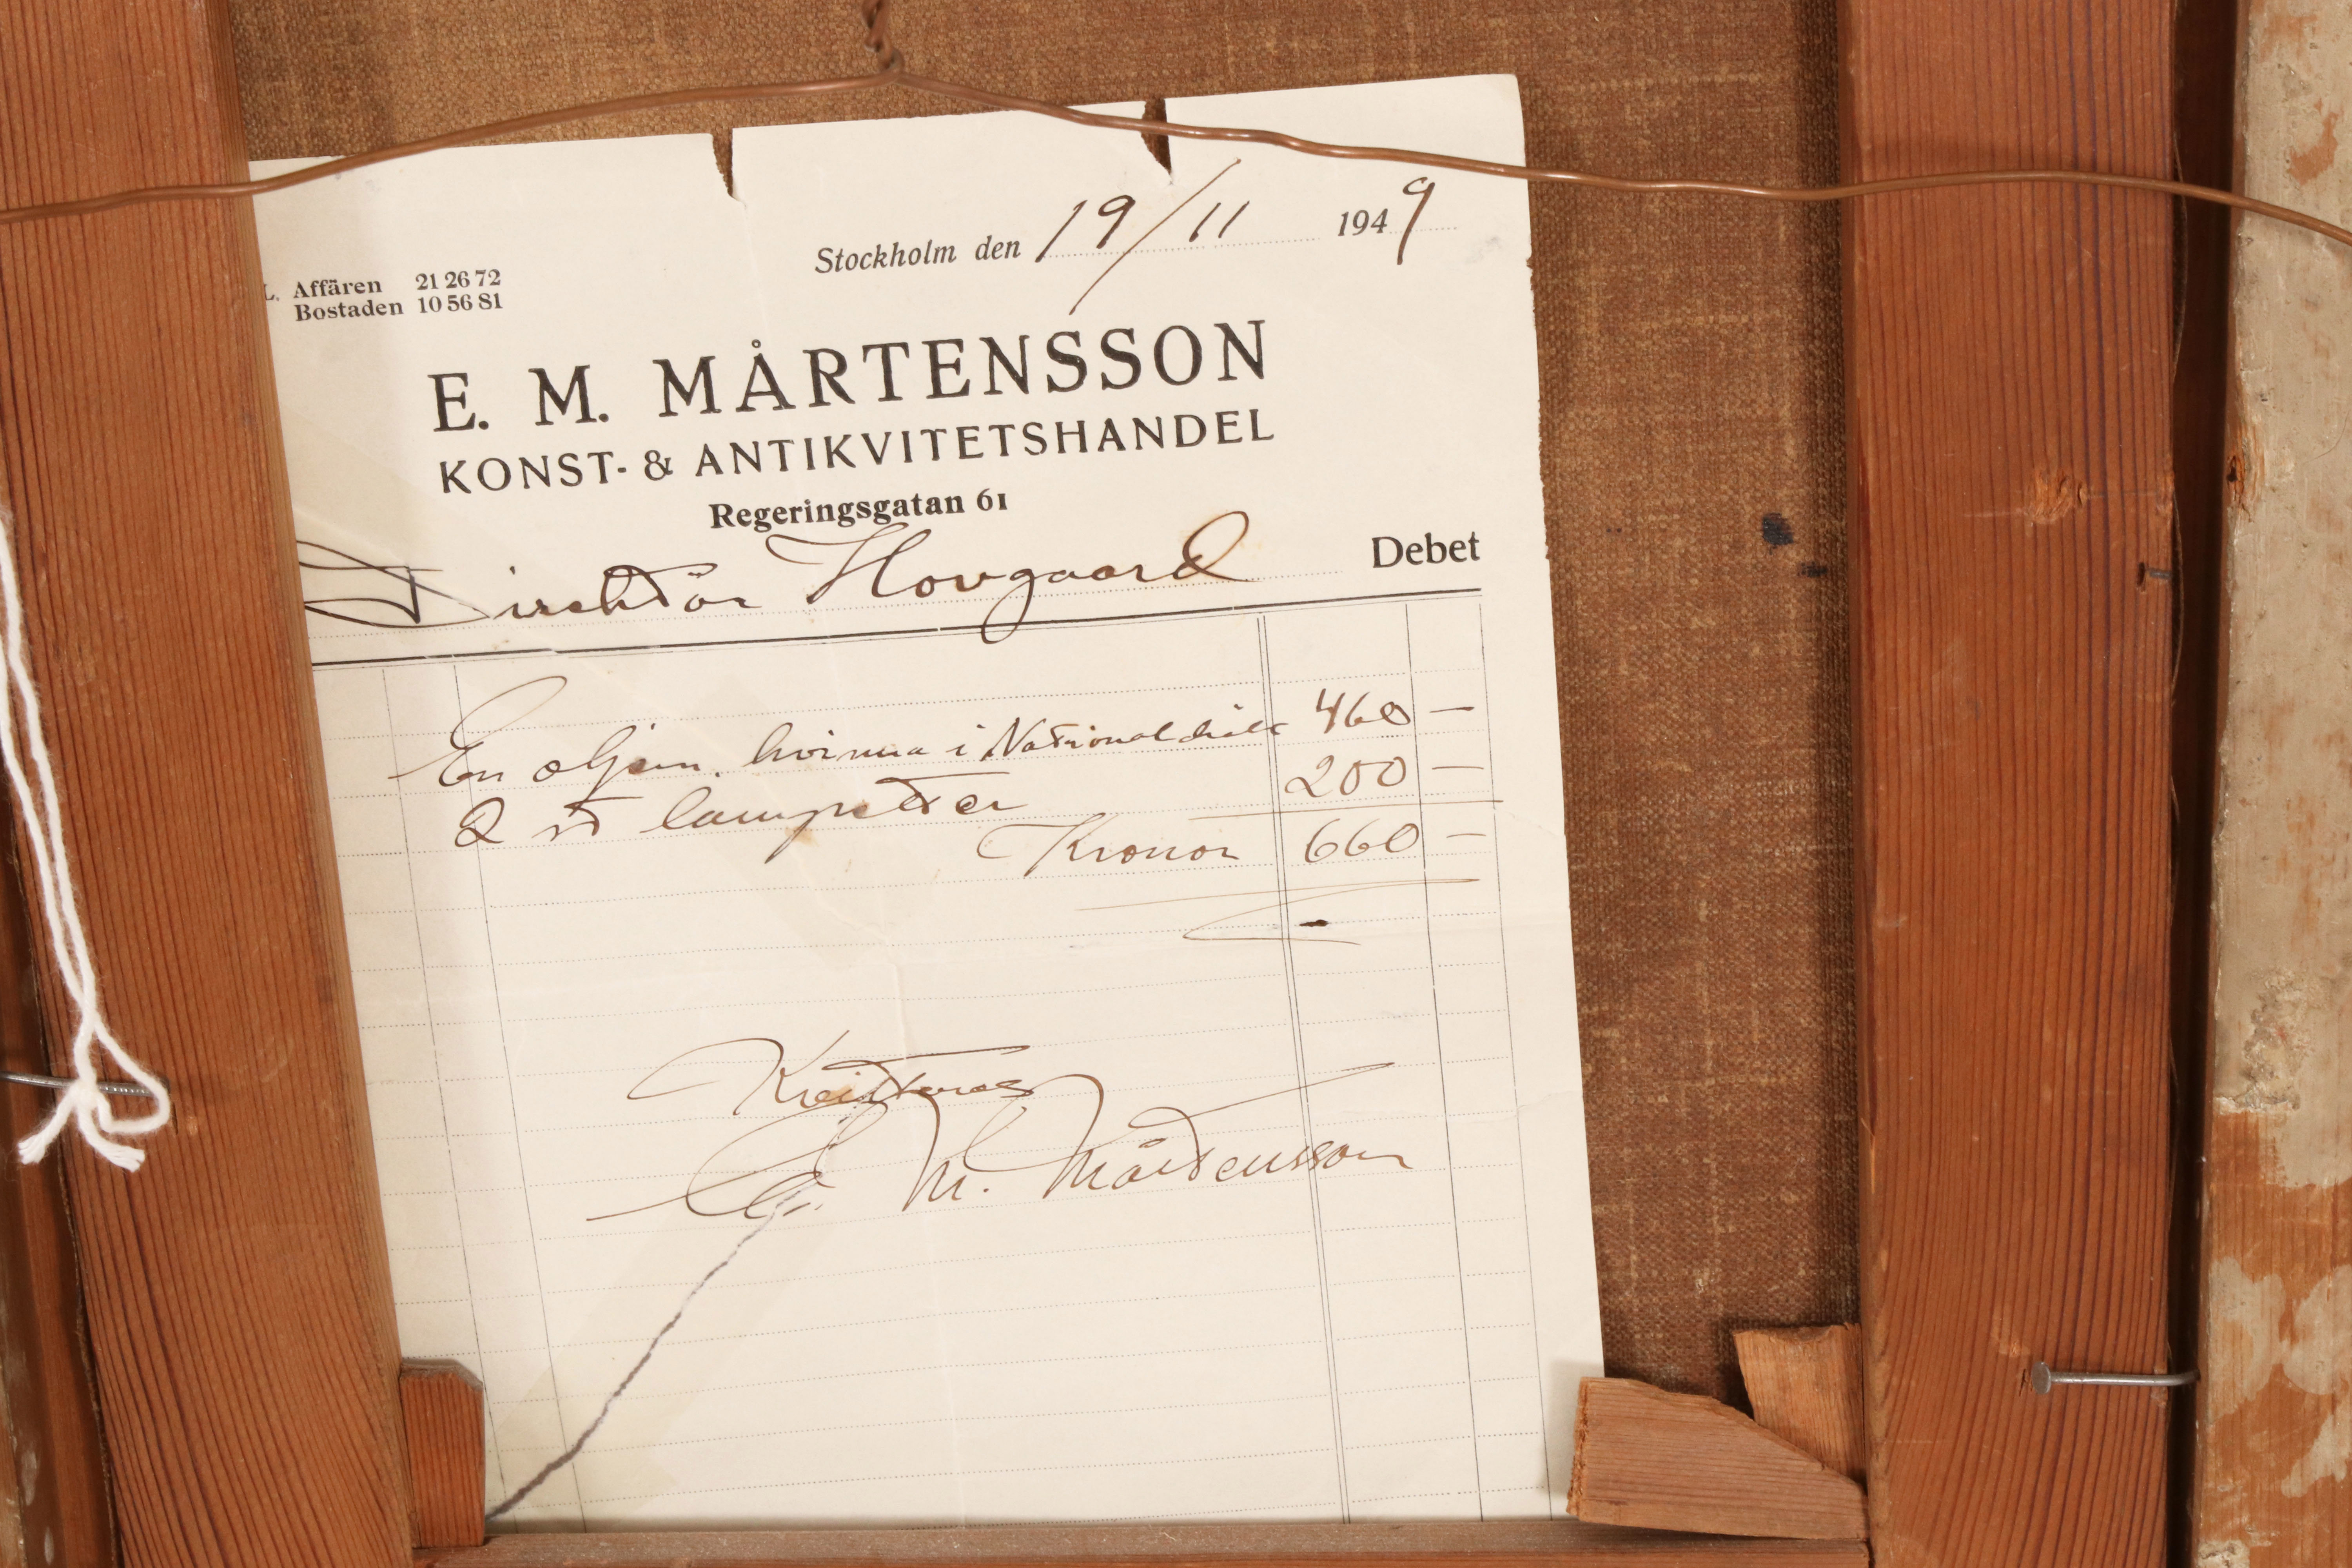 Stockholm den 19/11 1949
L. Affären 21 26 72
Bostaden 10 56 81
E. M. MÅRTENSSON
KONST- & ANTIKVITETSHANDEL
Regeringsgatan 61
Direktör Hovgaard Debet
En oljem. kvinna i Nationaldräkt 460 —
2 st lampetter 200 —
Kronor 660 —
Kvitteras
E. M. Mårtensson